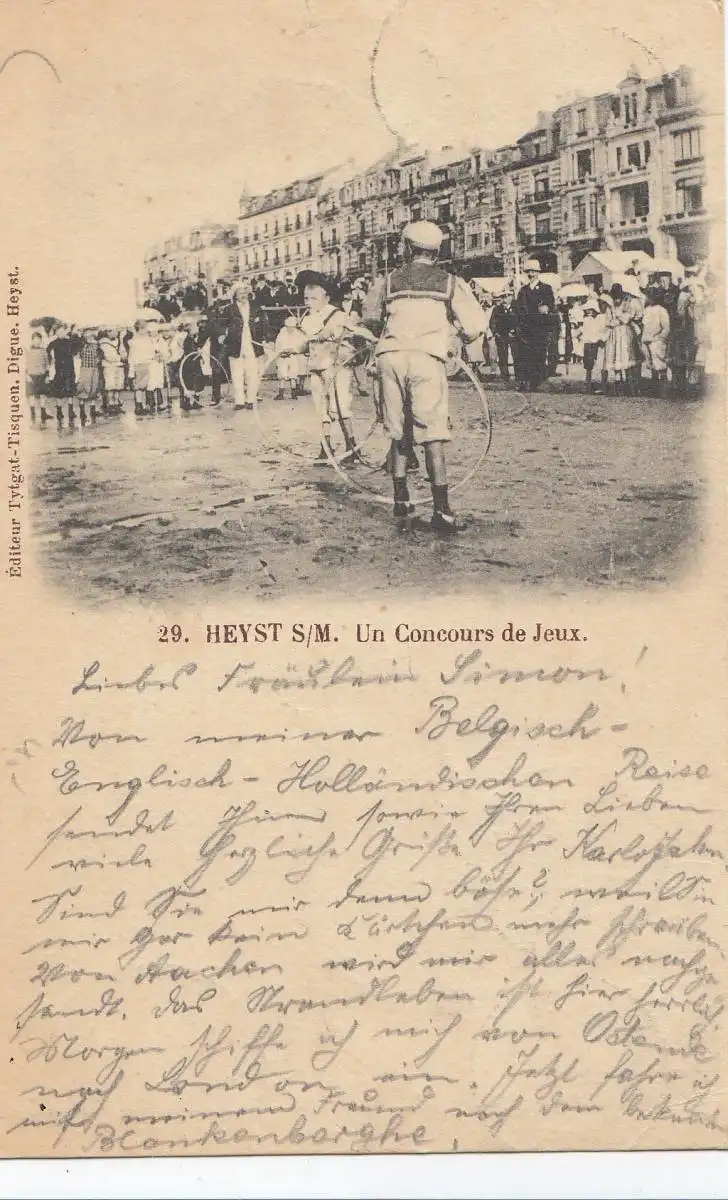 Éditeur Tytgat-Tisquen. Digue. Heyst.
29. HEYST S/M. Un Concours de Jeux.
Liebes Fräulein Simon!
Von meiner Belgisch-
Englisch-Holländischen Reise
sendet Ihnen sowie Ihren Lieben
viele herzliche Grüße Ihr Karl
Sind Sie mir denn böse?, weil Sie
mir gar kein Kärtchen mehr schreiben.
Von Aachen wird mir alles nachge
sandt. das Strandleben ist hier herrlich
Morgen schiffe ich mich von Ostende
nach London ein. Jetzt fahre ich
mit meinem Freund nach dem bekannten
Blankenberghe.